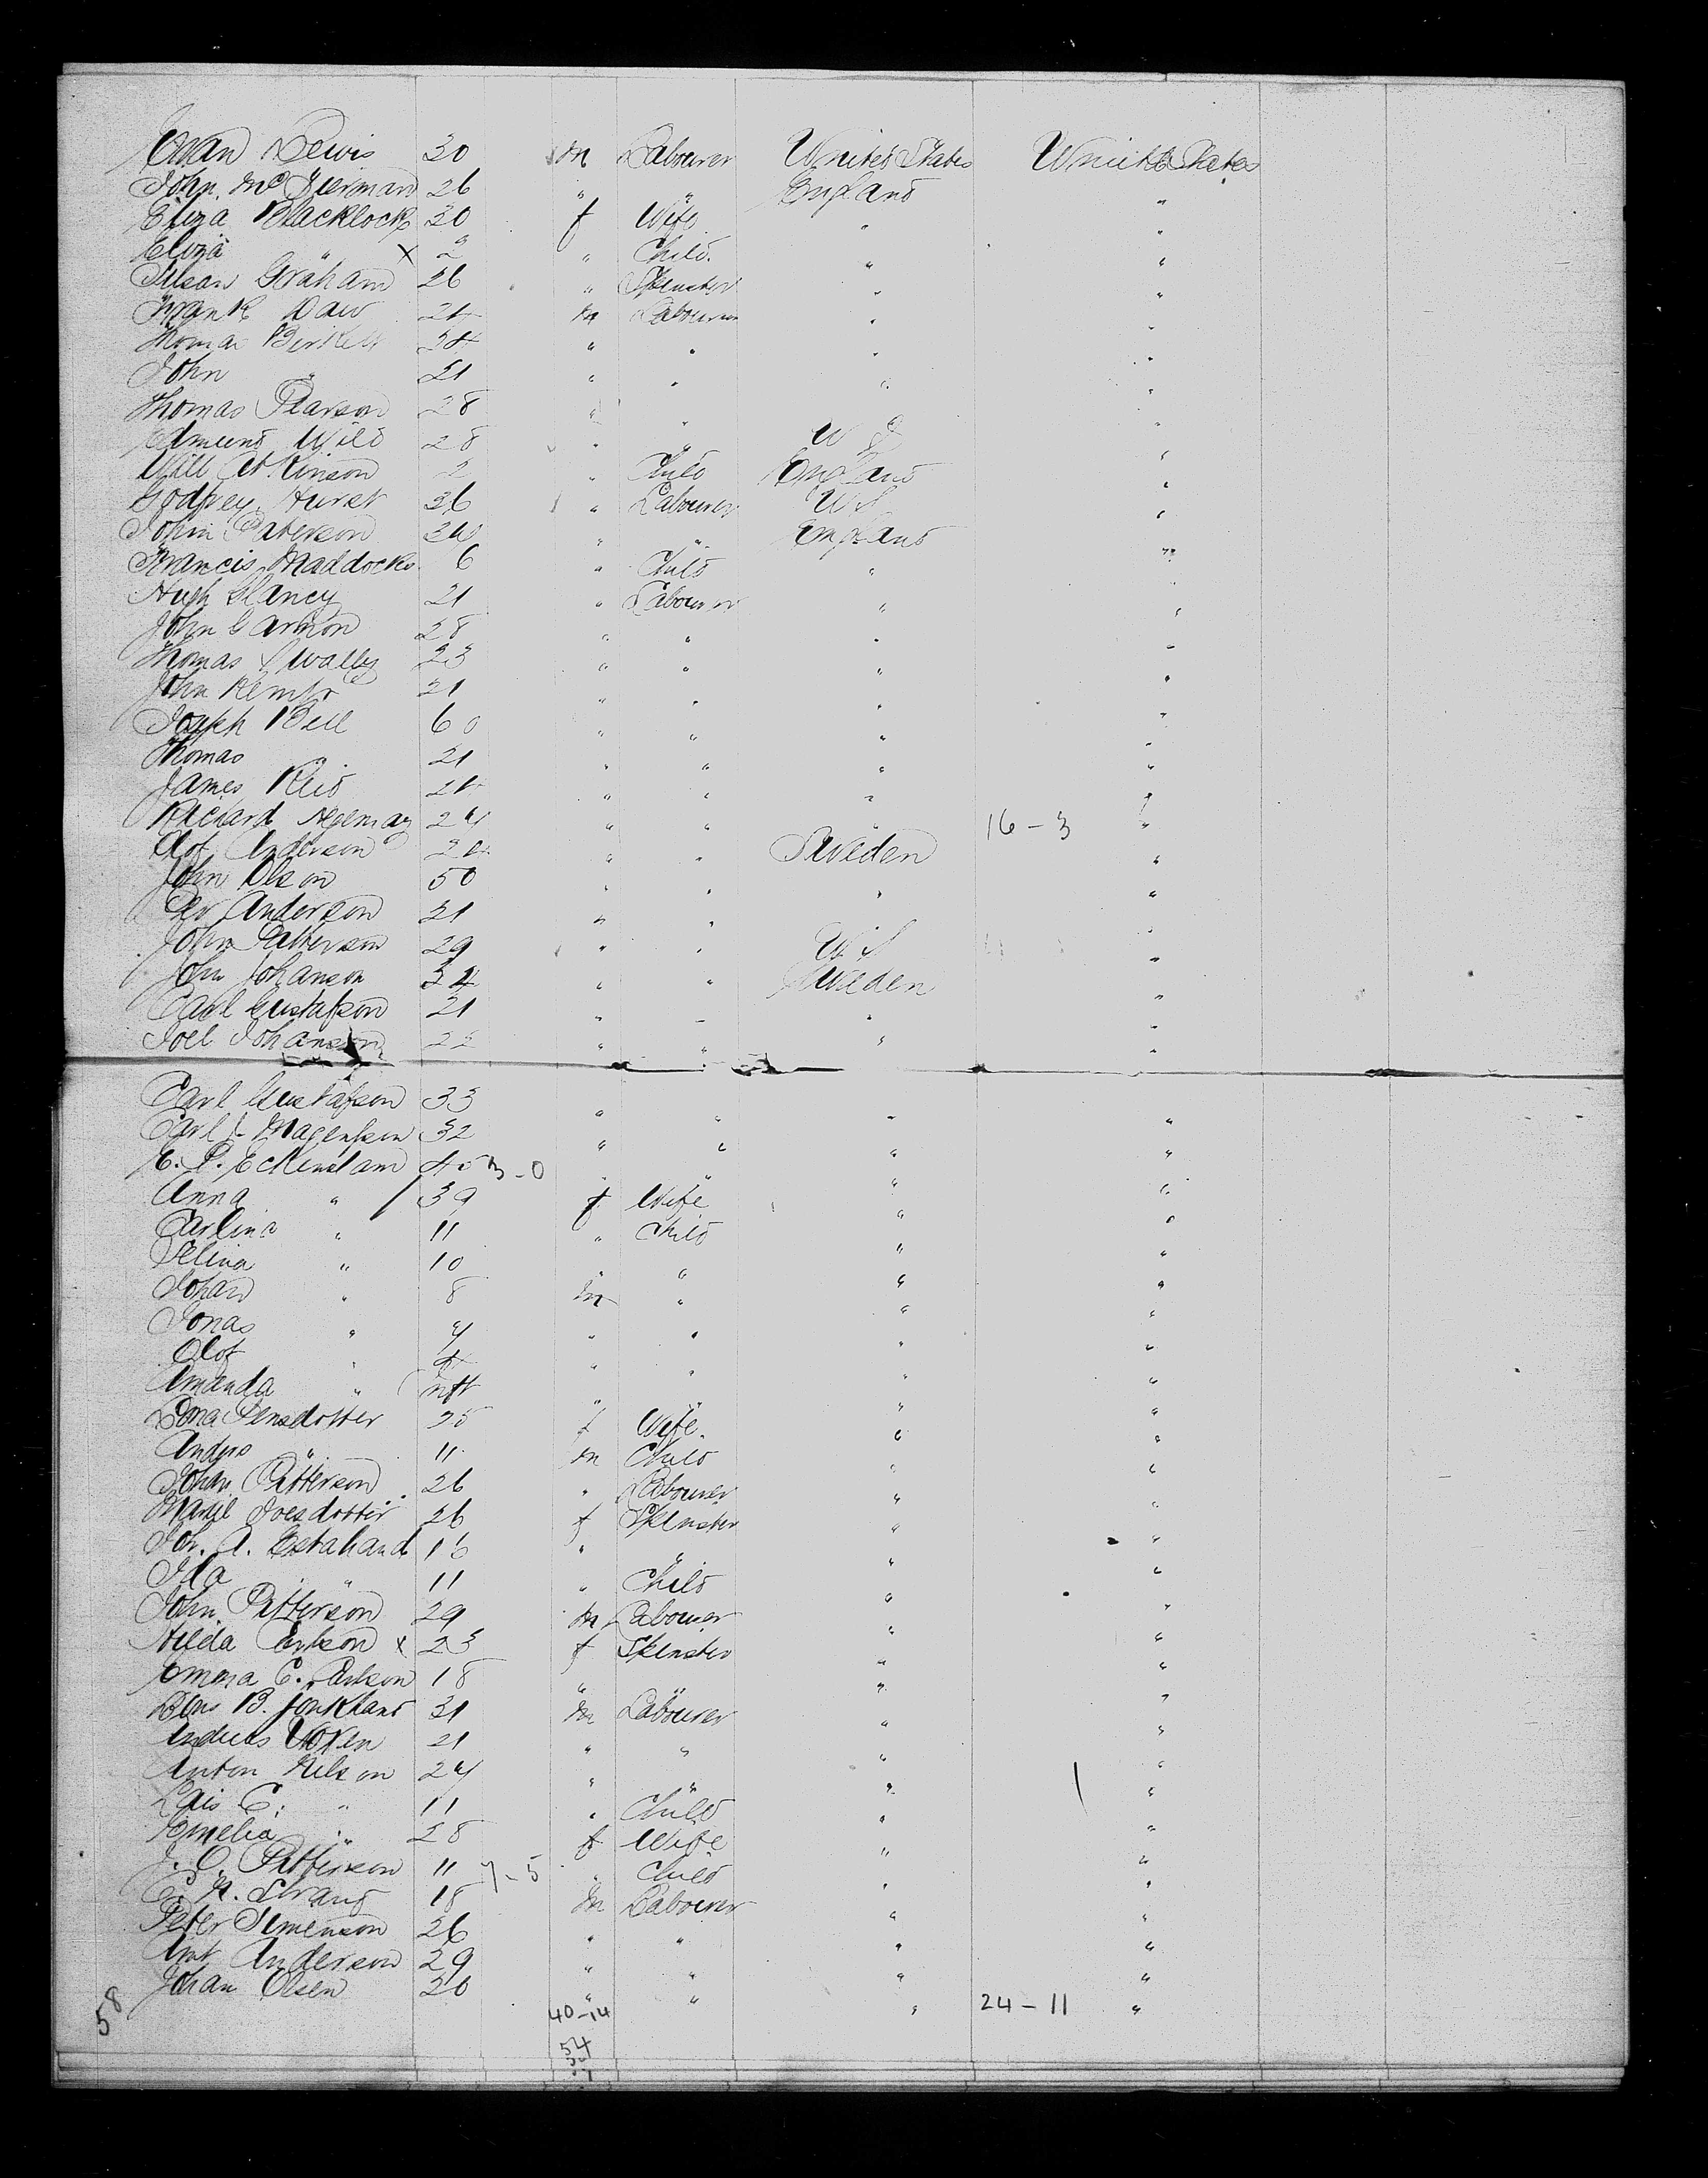 Evan Lewis 30 m Labourer United States United States
John Mc 26 " " England "
Eliza Blacklock 30 f Wife " "
Eliza " x 2 " Child " "
Susan Graham 26 " Spinster " "
Frank Daw 24 m Labourer " "
Thomas Birkett 34 " " " "
John " 21 " " " "
Thomas Pearson 28 " " " "
Edmund Wild 28 " " U S "
Will Atkinson 2 " Child England "
Godfrey Hurst 36 " Labourer U S "
John Paterson 30 " " England "
Francis Maddocks 6 " Child " "
Hugh Clancy 21 " Labourer " "
John Garmon 28 " " " "
Thomas Swalley 23 " " " "
John 21 " " " "
Joseph Bell 60 " " " "
Thomas " 21 " " " "
James Reid 24 " " " "
Richard 24 " " " 16-3 "
Olof Anderson 24 " " Sweden "
John Olson 50 " " " "
Per Anderson 21 " " " "
John Petterson 29 " " U S "
John Johanson 34 " " Sweden "
Carl Gustafson 21 " " " "
Joel Johanson 22 " " " "
Carl Gustafson 33 " " " "
Carl J. 32 " " " "
E. P. 45 3-0 " " " "
Anna " 39 f Wife " "
Carlina " 11 " Child " "
Selina " 10 " " " "
Johan " 8 m " " "
Jonas " 7 " " " "
Olof " 4 " " " "
Amanda " inft " " " "
Lena Pensdotter 35 f Wife " "
Anders " 11 m Child " "
Johan Petterson 26 " Labourer " "
26 f Spinster " "
Joh. A. 16 " " " "
Ida " 11 " Child " "
John Petterson 29 m Labourer " "
Hilda x 23 f Spinster " "
Emma C. 18 " " " "
B. 31 m Labourer " "
Andreas 21 " " " "
Anton Nilson 24 " " " "
C. " 11 " Child " "
Emelia " 28 f Wife " "
J. O. Petterson 11 7-5 " Child " "
18 m Labourer " "
Peter Simenson 26 " " " "
Anderson 29 " " " "
Johan Olsen 20 " " " 24-11 "
58
40-14
54